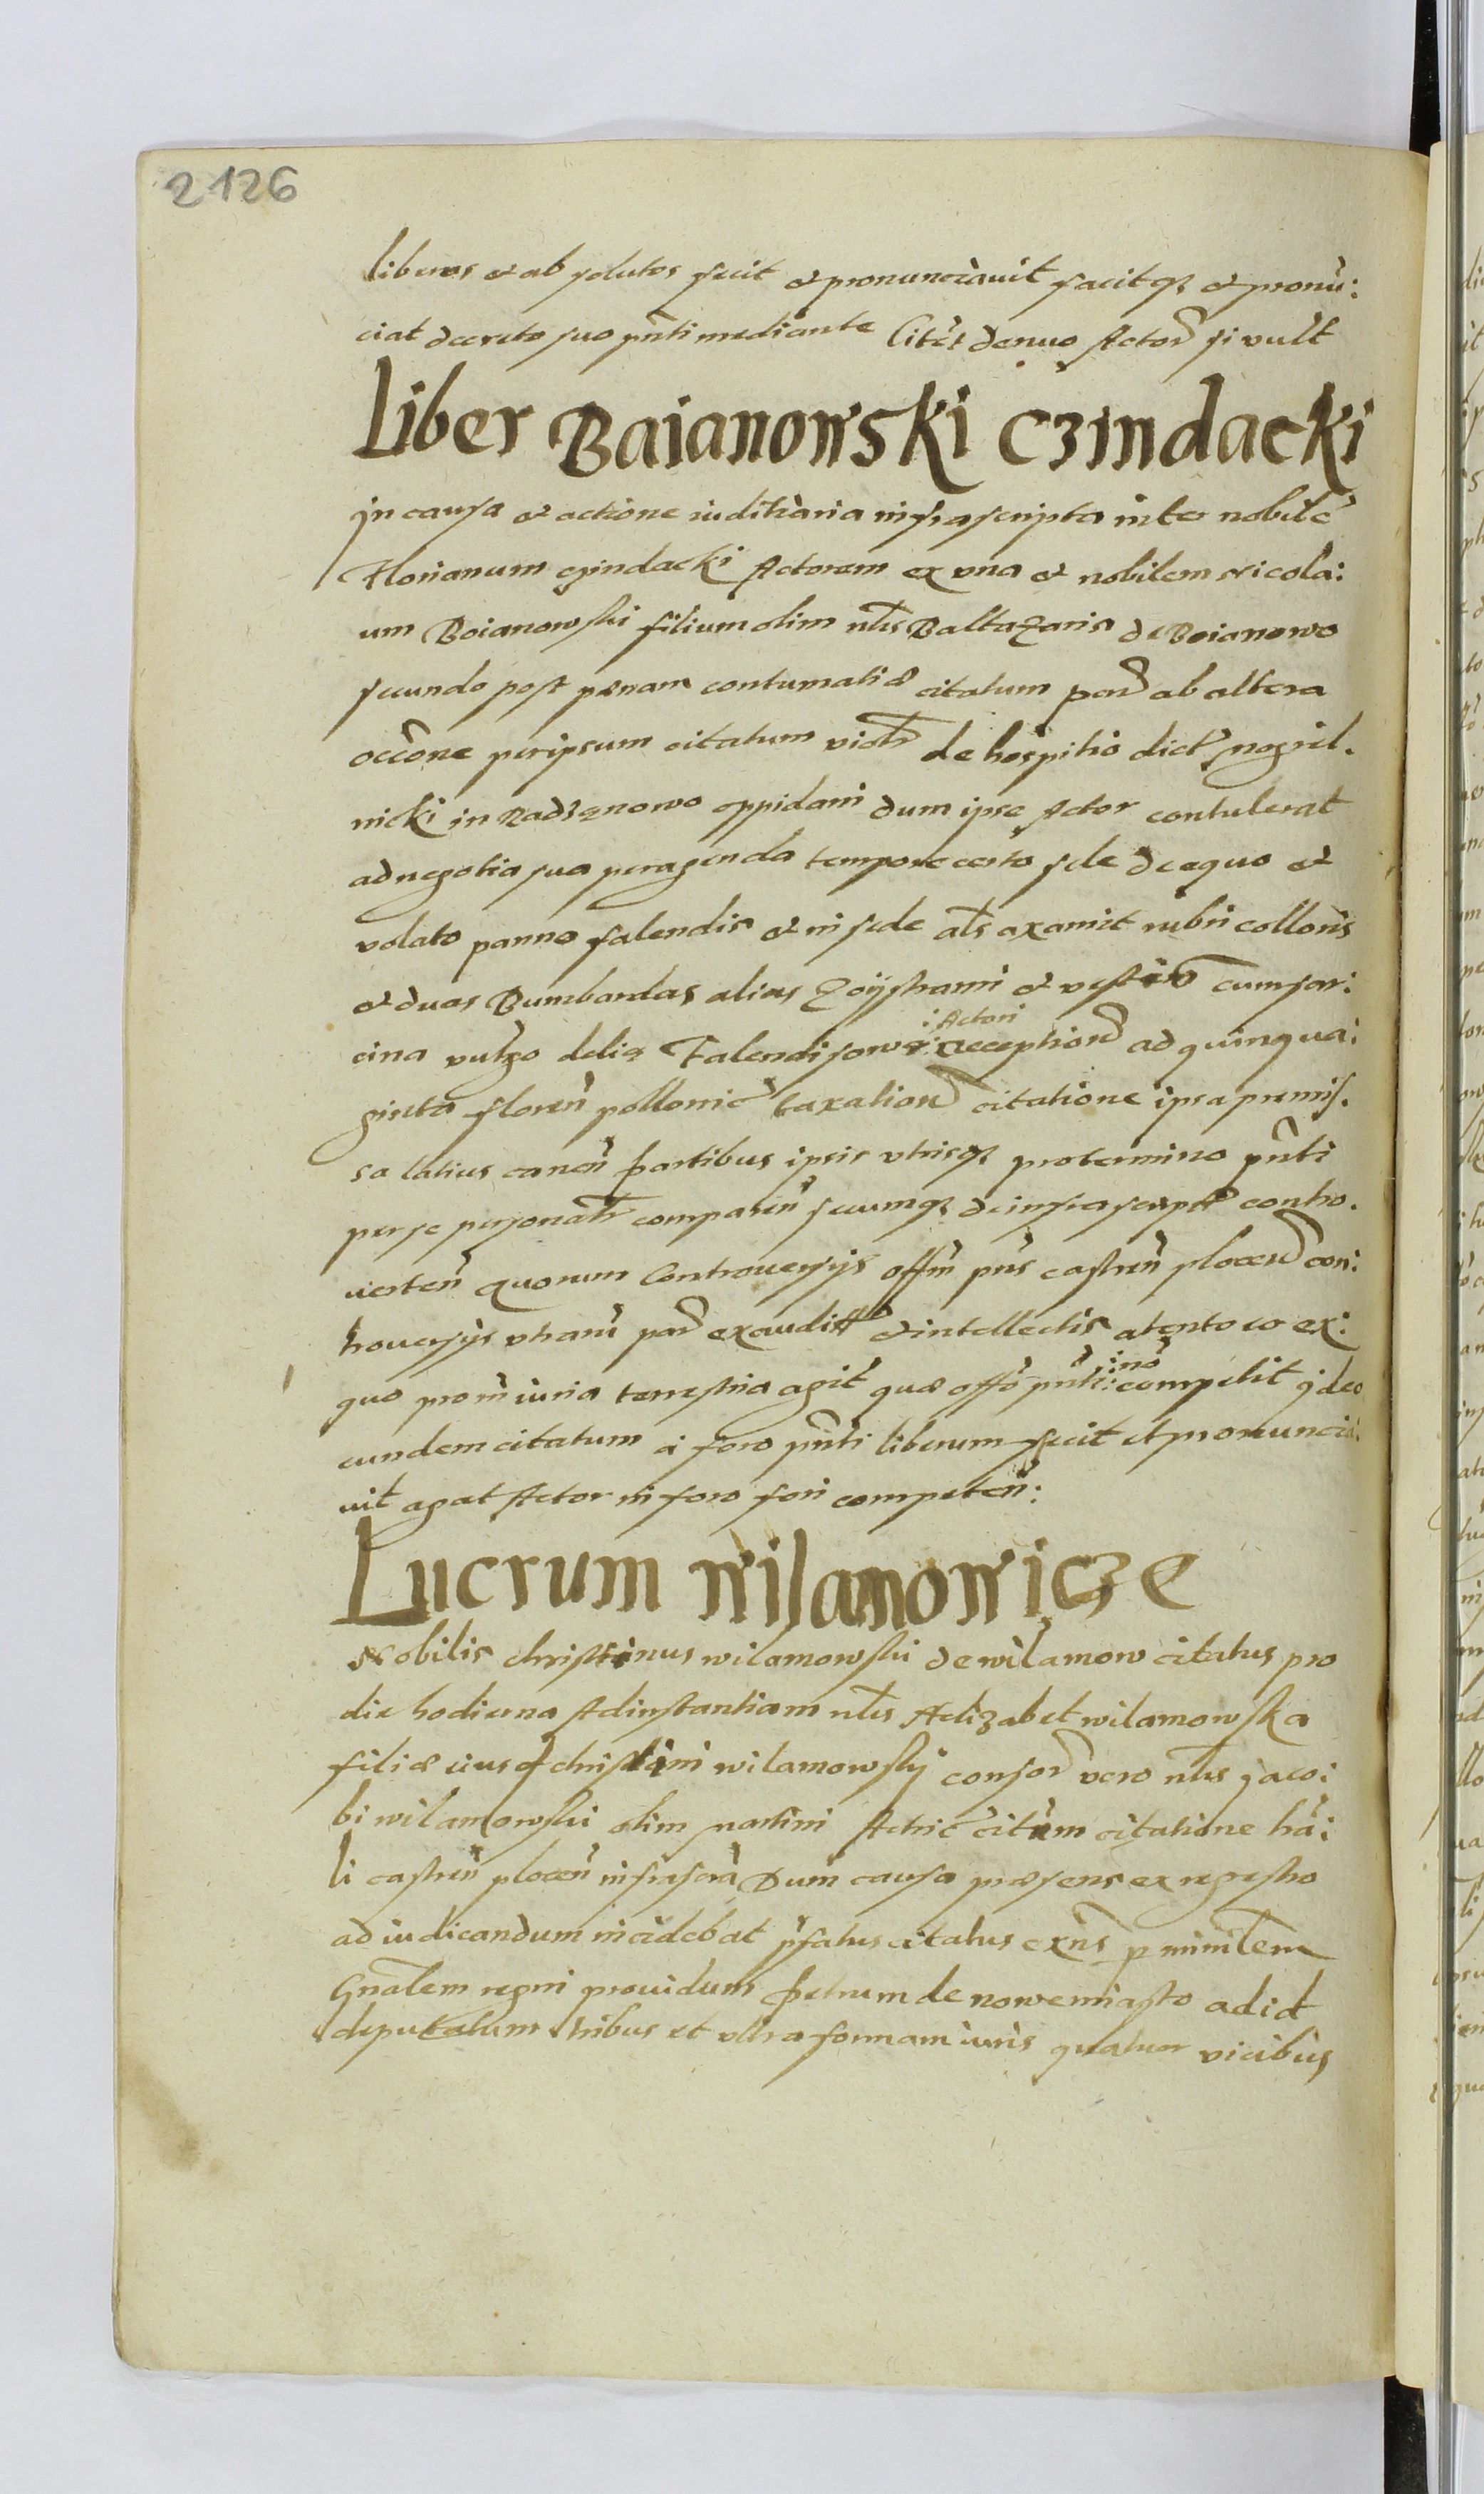 2126
liberos et absolutos fecit et pronunciauit facitq3 et pronū:
ciat decreto suo pn̄ti mediante Citet denuo Actor si vult
Liber Baianowski Czindacki
In causa et actione iuditiaria infrascripta inter nobilē
Florianum czindacki Actorem ex vna et nobilem Nicola:
um Boianowski filium olim nl̄is Baltazaris de Boianowo
secundo post pænam contumatiæ citatum par̄ ab altera
occōne per ipsum citatum violn̄ de hospitio dict
nicki in Radzanowo oppidani dum ipse Actor contulerat
ad negotia sua peragenda tempore certo sele de equo et
volato panno falendis et in sede al̄s axamit rubri colloris
et duas Bumbardas alias et cum far:
cina vulgo delia Falendisowa :Actori: reception̄ ad quinqua:
ginta floren̄ pollonic̄ taxation̄ citatione ipsa premis.
sa latius canen̄ partibus ipsis vtrisq3 pro termino pn̄ti
per se personalr̄ comparen̄ secumq3 de infrascript contro.
verten̄ quorum Controuersijs offm̄ pn̄s castren̄ plocen̄ con:
trouersijs vtrarū par̄ exauditis et intellectis atento eo ex:
quo pro iniuria terrestria agit quæ offō pn̄ti :nō: competit ideo
eundem citatum a foro pn̄ti liberum fecit et pronuncia:
uit agat Actor in foro fori competen̄:
Lucrum wilamowicze
Nobilis christinus wilamowski de wilamow citatus pro
die hodierna Ad instantiam nl̄is Aelizabet wilamowska
filiæ eiusd christini wilamowsky consor̄ vero nl̄is Jaco:
bi wilamowski olim martini Actric̄ citūm citatione hāi:
li castren̄ plocen̄ infrascrā Dum causa præsens ex regestro
ad iudicandum incidebat p̄fatus citatus exn̄s p minilem
Gnalem regni prouidum petrum de nowemiasto ad id
deputatum tribus et vltra formam iuris quatuor vicibus